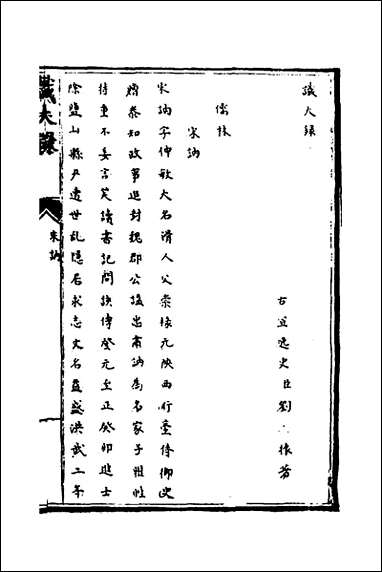 識大録
古宣逸史臣劉振芳
儒林
宋訥
宋訥字仲敏大名滑人父崇禄元陝西行臺侍御史
贈叅知政事追封魏郡公諡忠肅訥為名家子雅性
持重不妄言笑讀書記問該博登元至正癸卯進士
除鹽山縣尹遭世亂隱居求志文名益盛洪武二年
識大錄
宋訥